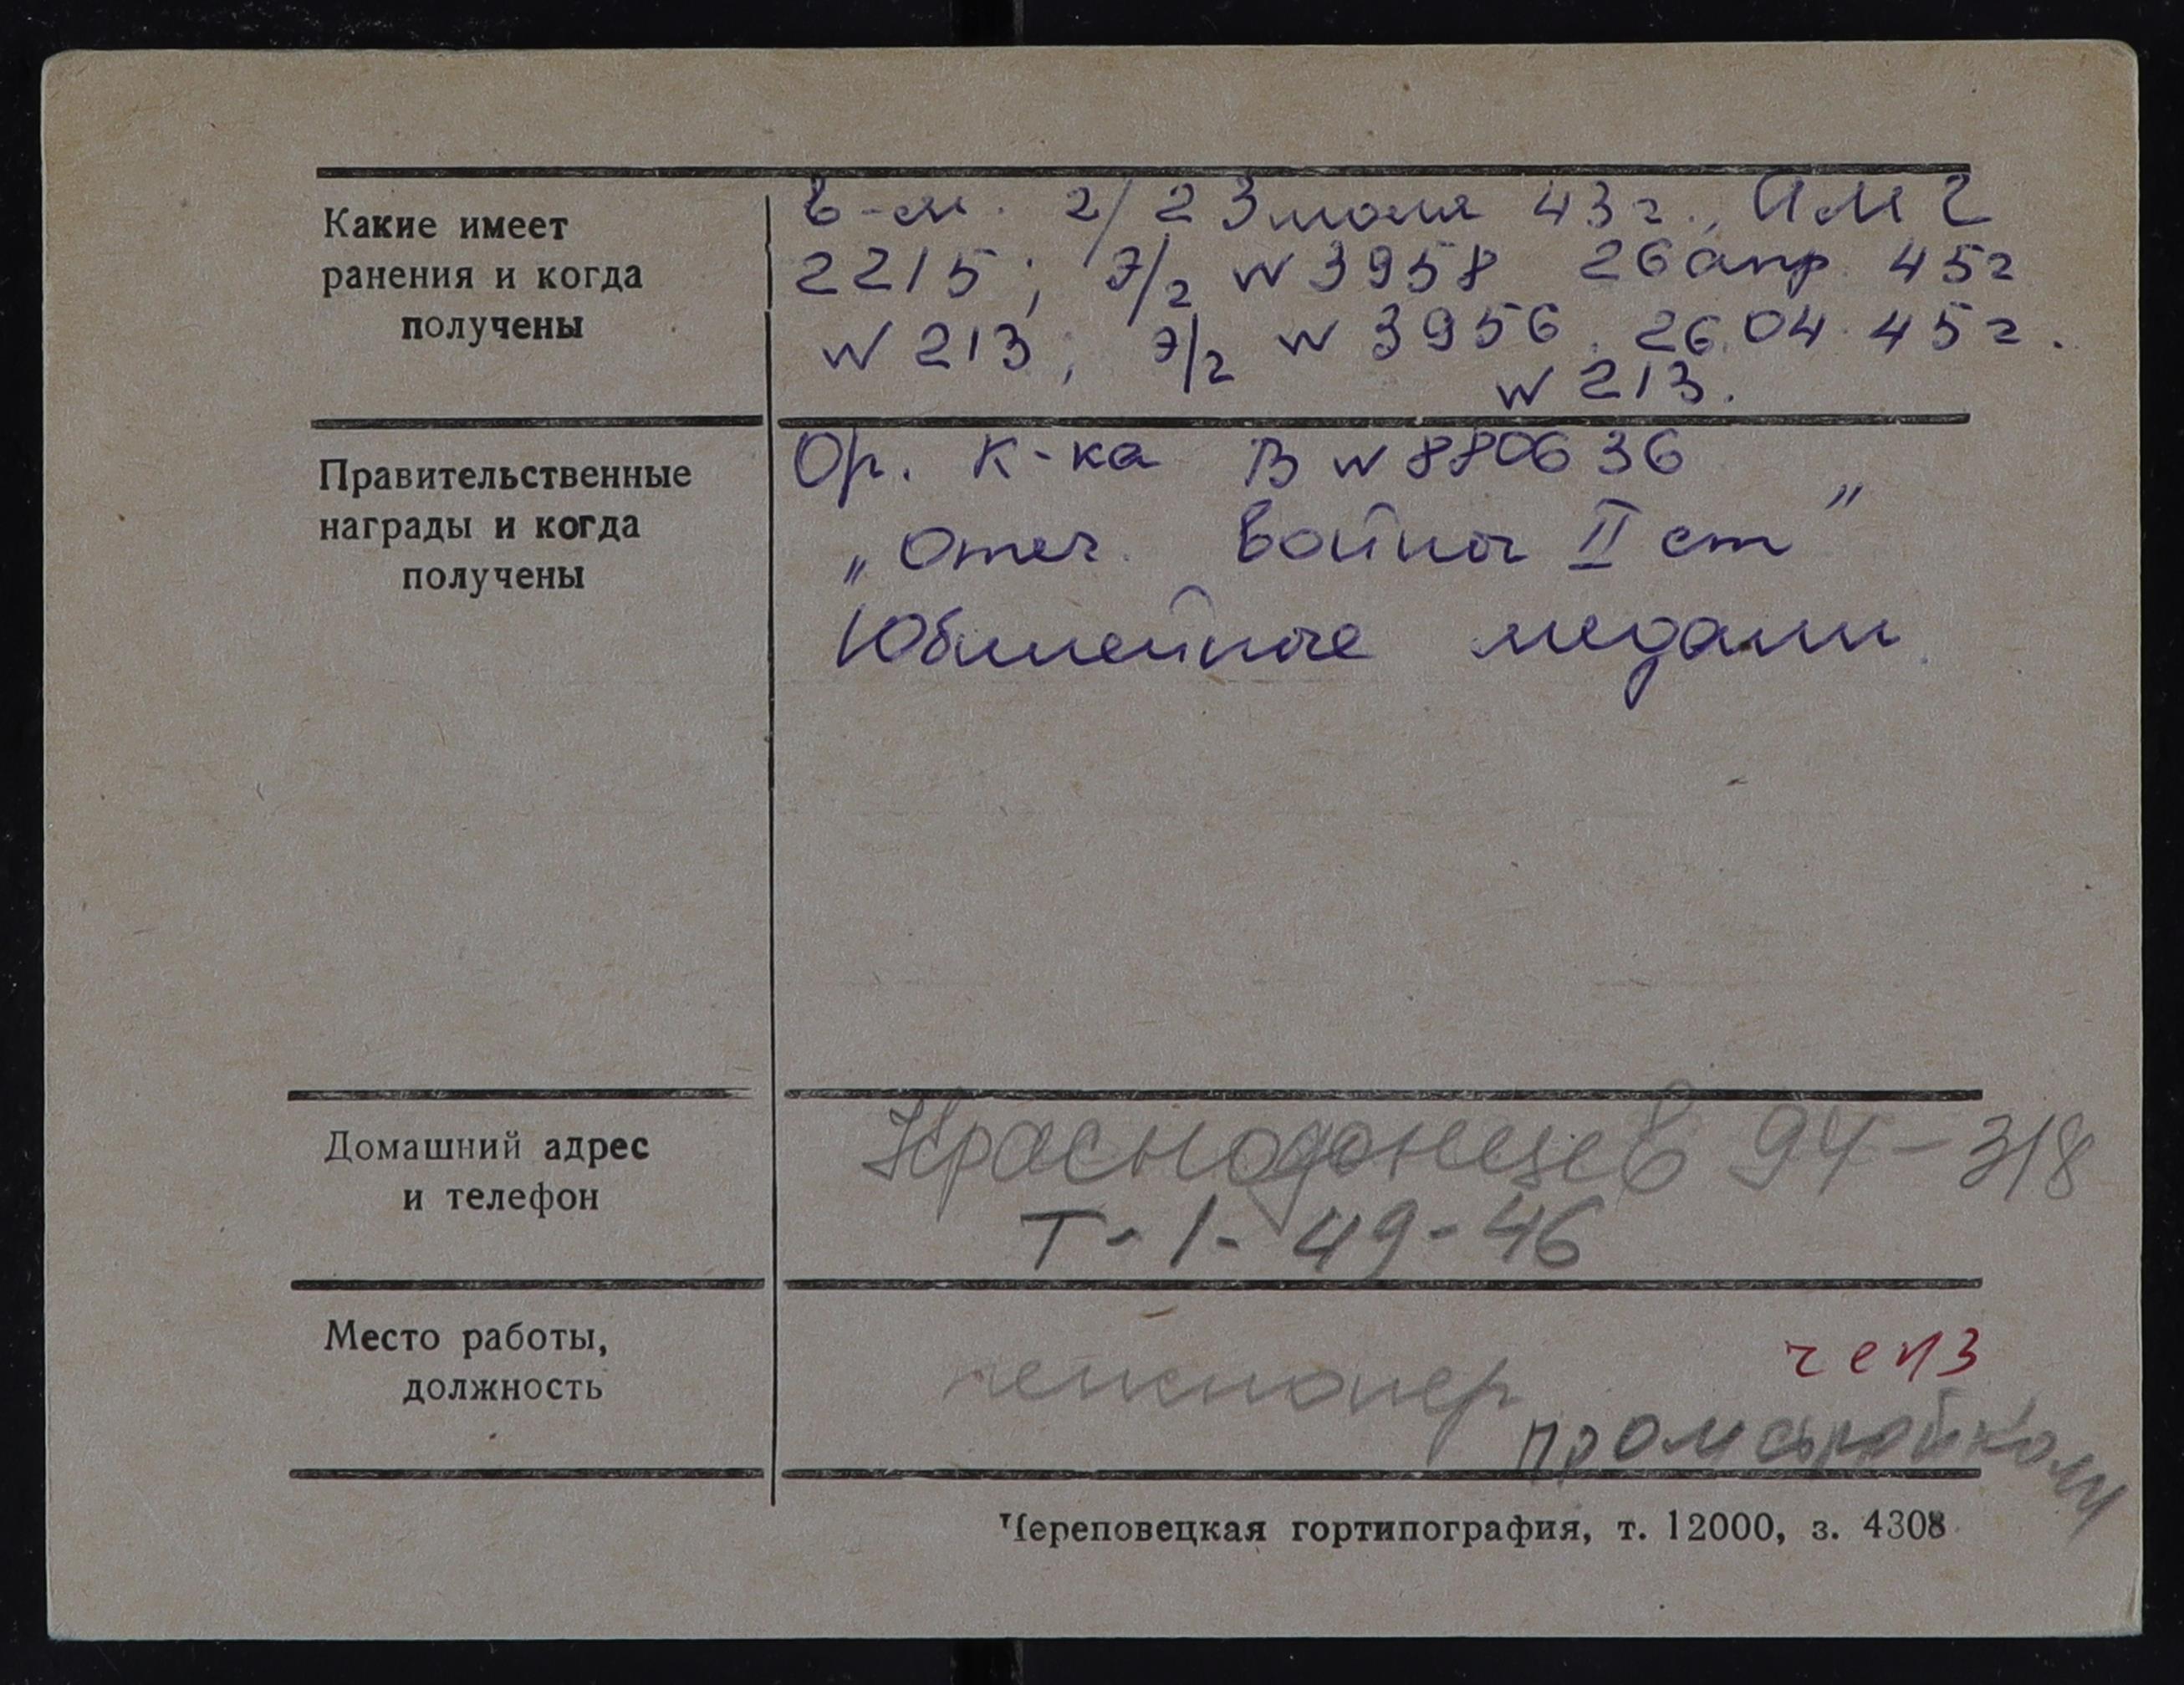 Какие имеет
ранения и когда
получены
в-м. г/г 23 июля 43 г., ПМГ
2215; Э/г № 3958 26 апр. 45 г
№ 213; Э/г № 3956. 26.04.45 г.
№ 213.
Правительственные
награды и когда
получены
Ор. К-ка В № 880636
„Отеч. войны II ст”
Юбилейные медали.
Домашний адрес
и телефон
Краснодонцев 94-318
Т-1-49-46
Место работы,
должность
чепз
пенсионер
промстройком
Череповецкая гортипография, т. 12000, з. 4308